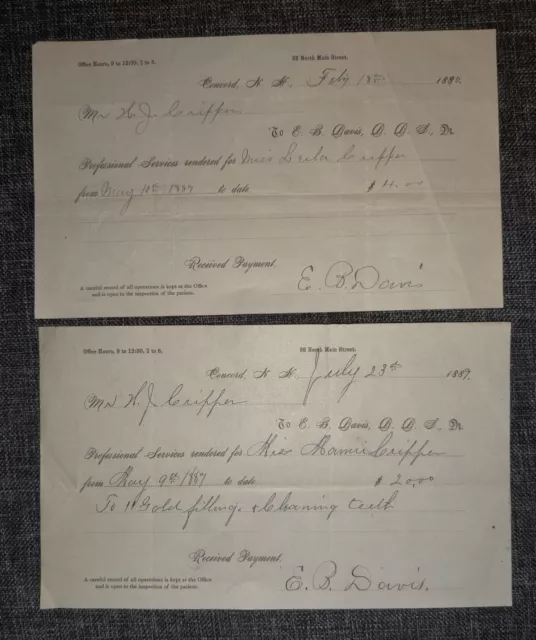 Office Hours, 9 to 12:30, 2 to 5. 98 North Main Street.
Concord, N. H., Feby 18th 1880.
Mr H. J. Crippen
To E. B. Davis, D. D. S., Dr.
Professional Services rendered for Miss Crippen
from May 10th 1887 to date $4.00
Received Payment.
A careful record of all operations is kept at the Office
and is open to the inspection of the patient.
E. B. Davis
Office Hours, 9 to 12:30, 2 to 5. 98 North Main Street.
Concord, N. H., July 23rd 1889.
Mr H. J. Crippen
To E. B. Davis, D. D. S., Dr.
Professional Services rendered for Miss Mamie Crippen
from May 9th 1887 to date $20.00
To Gold filling & Cleaning teeth
Received Payment.
A careful record of all operations is kept at the Office
and is open to the inspection of the patient.
E. B. Davis.